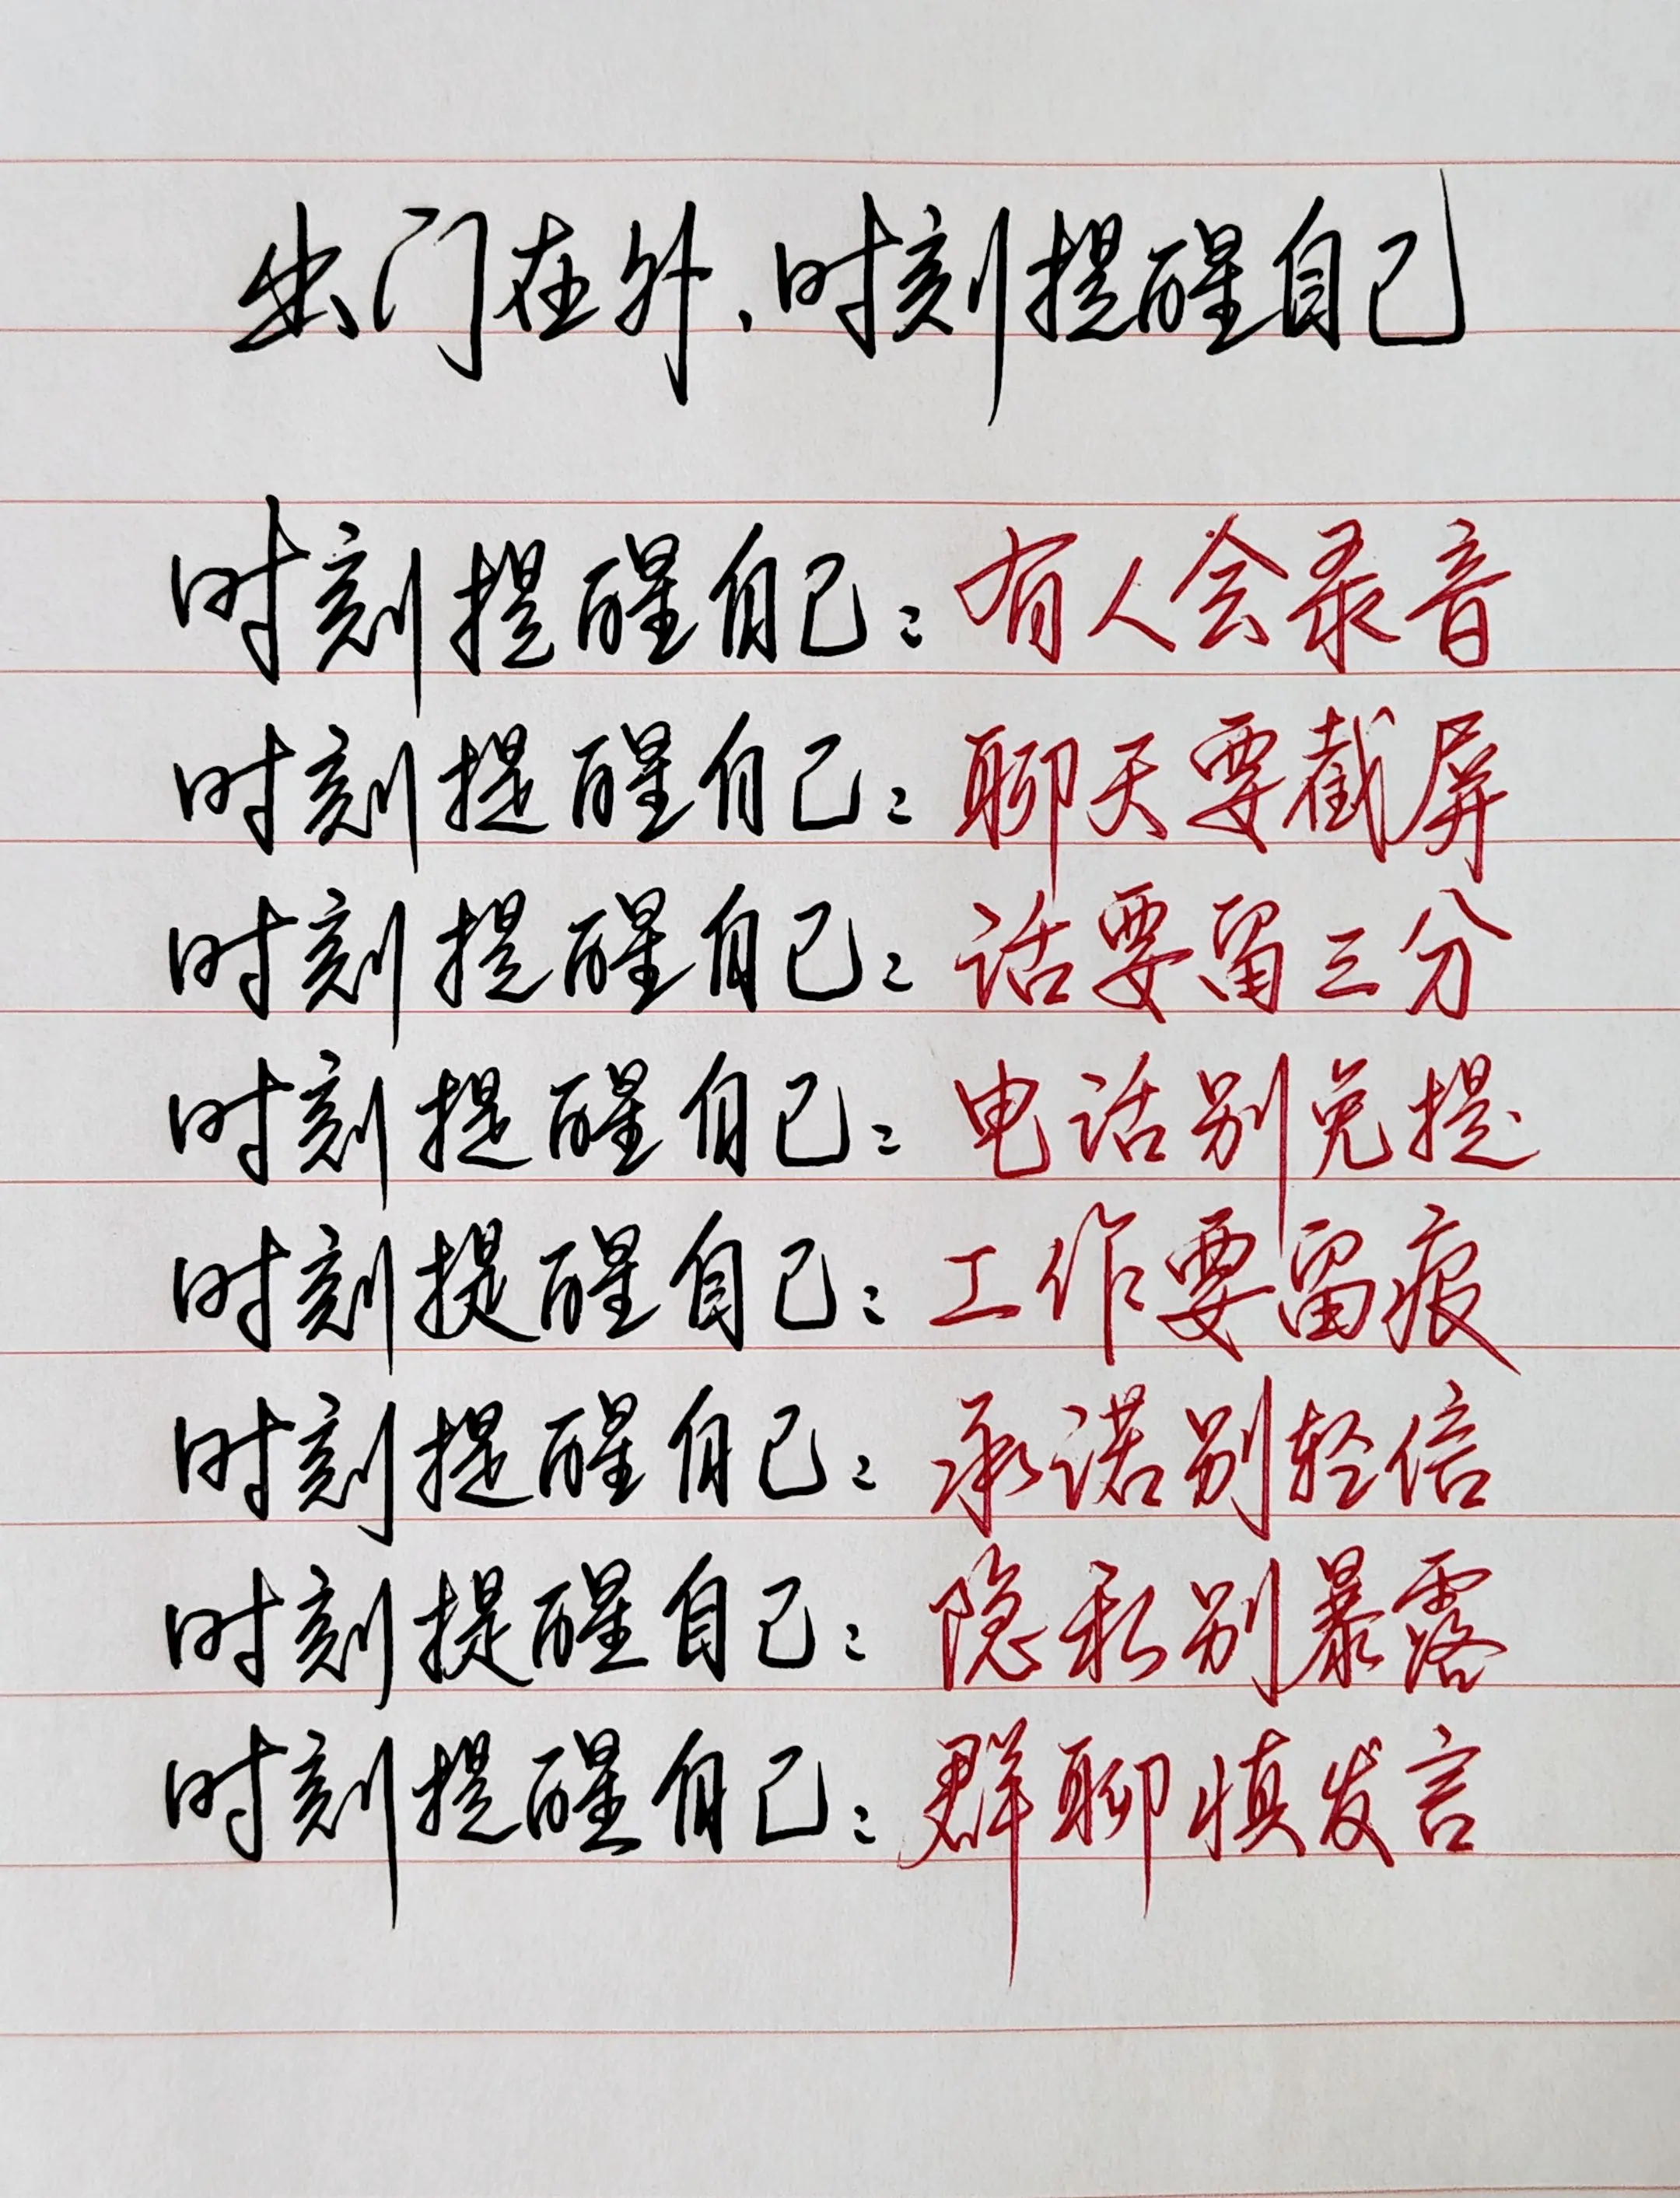 出门在外、时刻提醒自己
时刻提醒自己：有人会录音
时刻提醒自己：聊天要截屏
时刻提醒自己：话要留三分
时刻提醒自己：电话别免提
时刻提醒自己：工作要留痕
时刻提醒自己：承诺别轻信
时刻提醒自己：隐私别暴露
时刻提醒自己：群聊慎发言